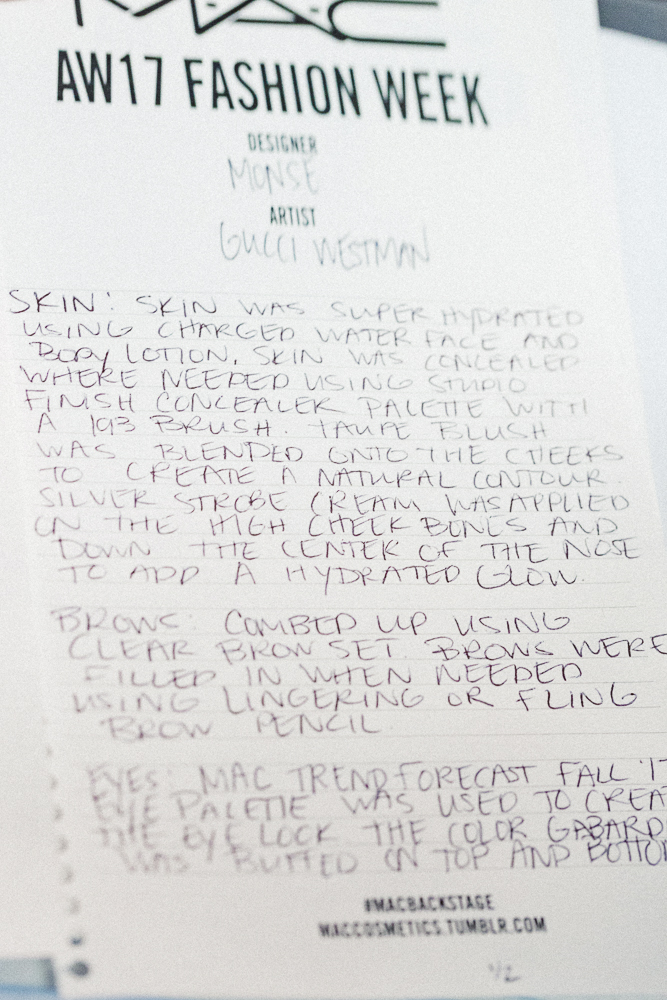 MAC
AW17 FASHION WEEK
DESIGNER
MONSE
ARTIST
GUCCI WESTMAN
SKIN: SKIN WAS SUPER HYDRATED
USING CHARGED WATER FACE AND
BODY LOTION. SKIN WAS CONCEALED
WHERE NEEDED USING STUDIO
FINISH CONCEALER PALETTE WITH
A 193 BRUSH. TAUPE BLUSH
WAS BLENDED ONTO THE CHEEKS
TO CREATE A NATURAL CONTOUR.
SILVER STROBE CREAM WAS APPLIED
ON THE HIGH CHEEK BONES AND
DOWN THE CENTER OF THE NOSE
TO ADD A HYDRATED GLOW.
BROWS: COMBED UP USING
CLEAR BROW SET. BROWS WERE
FILLED IN WHEN NEEDED
USING LINGERING OR FLING
BROW PENCIL
EYES: MAC TREND FORECAST FALL '17
EYE PALETTE WAS USED TO CREAT
THE EYE LOOK THE COLOR GABARD
WAS BUFFED ON TOP AND BOTTO
#MACBACKSTAGE
MACCOSMETICS.TUMBLR.COM
1/2